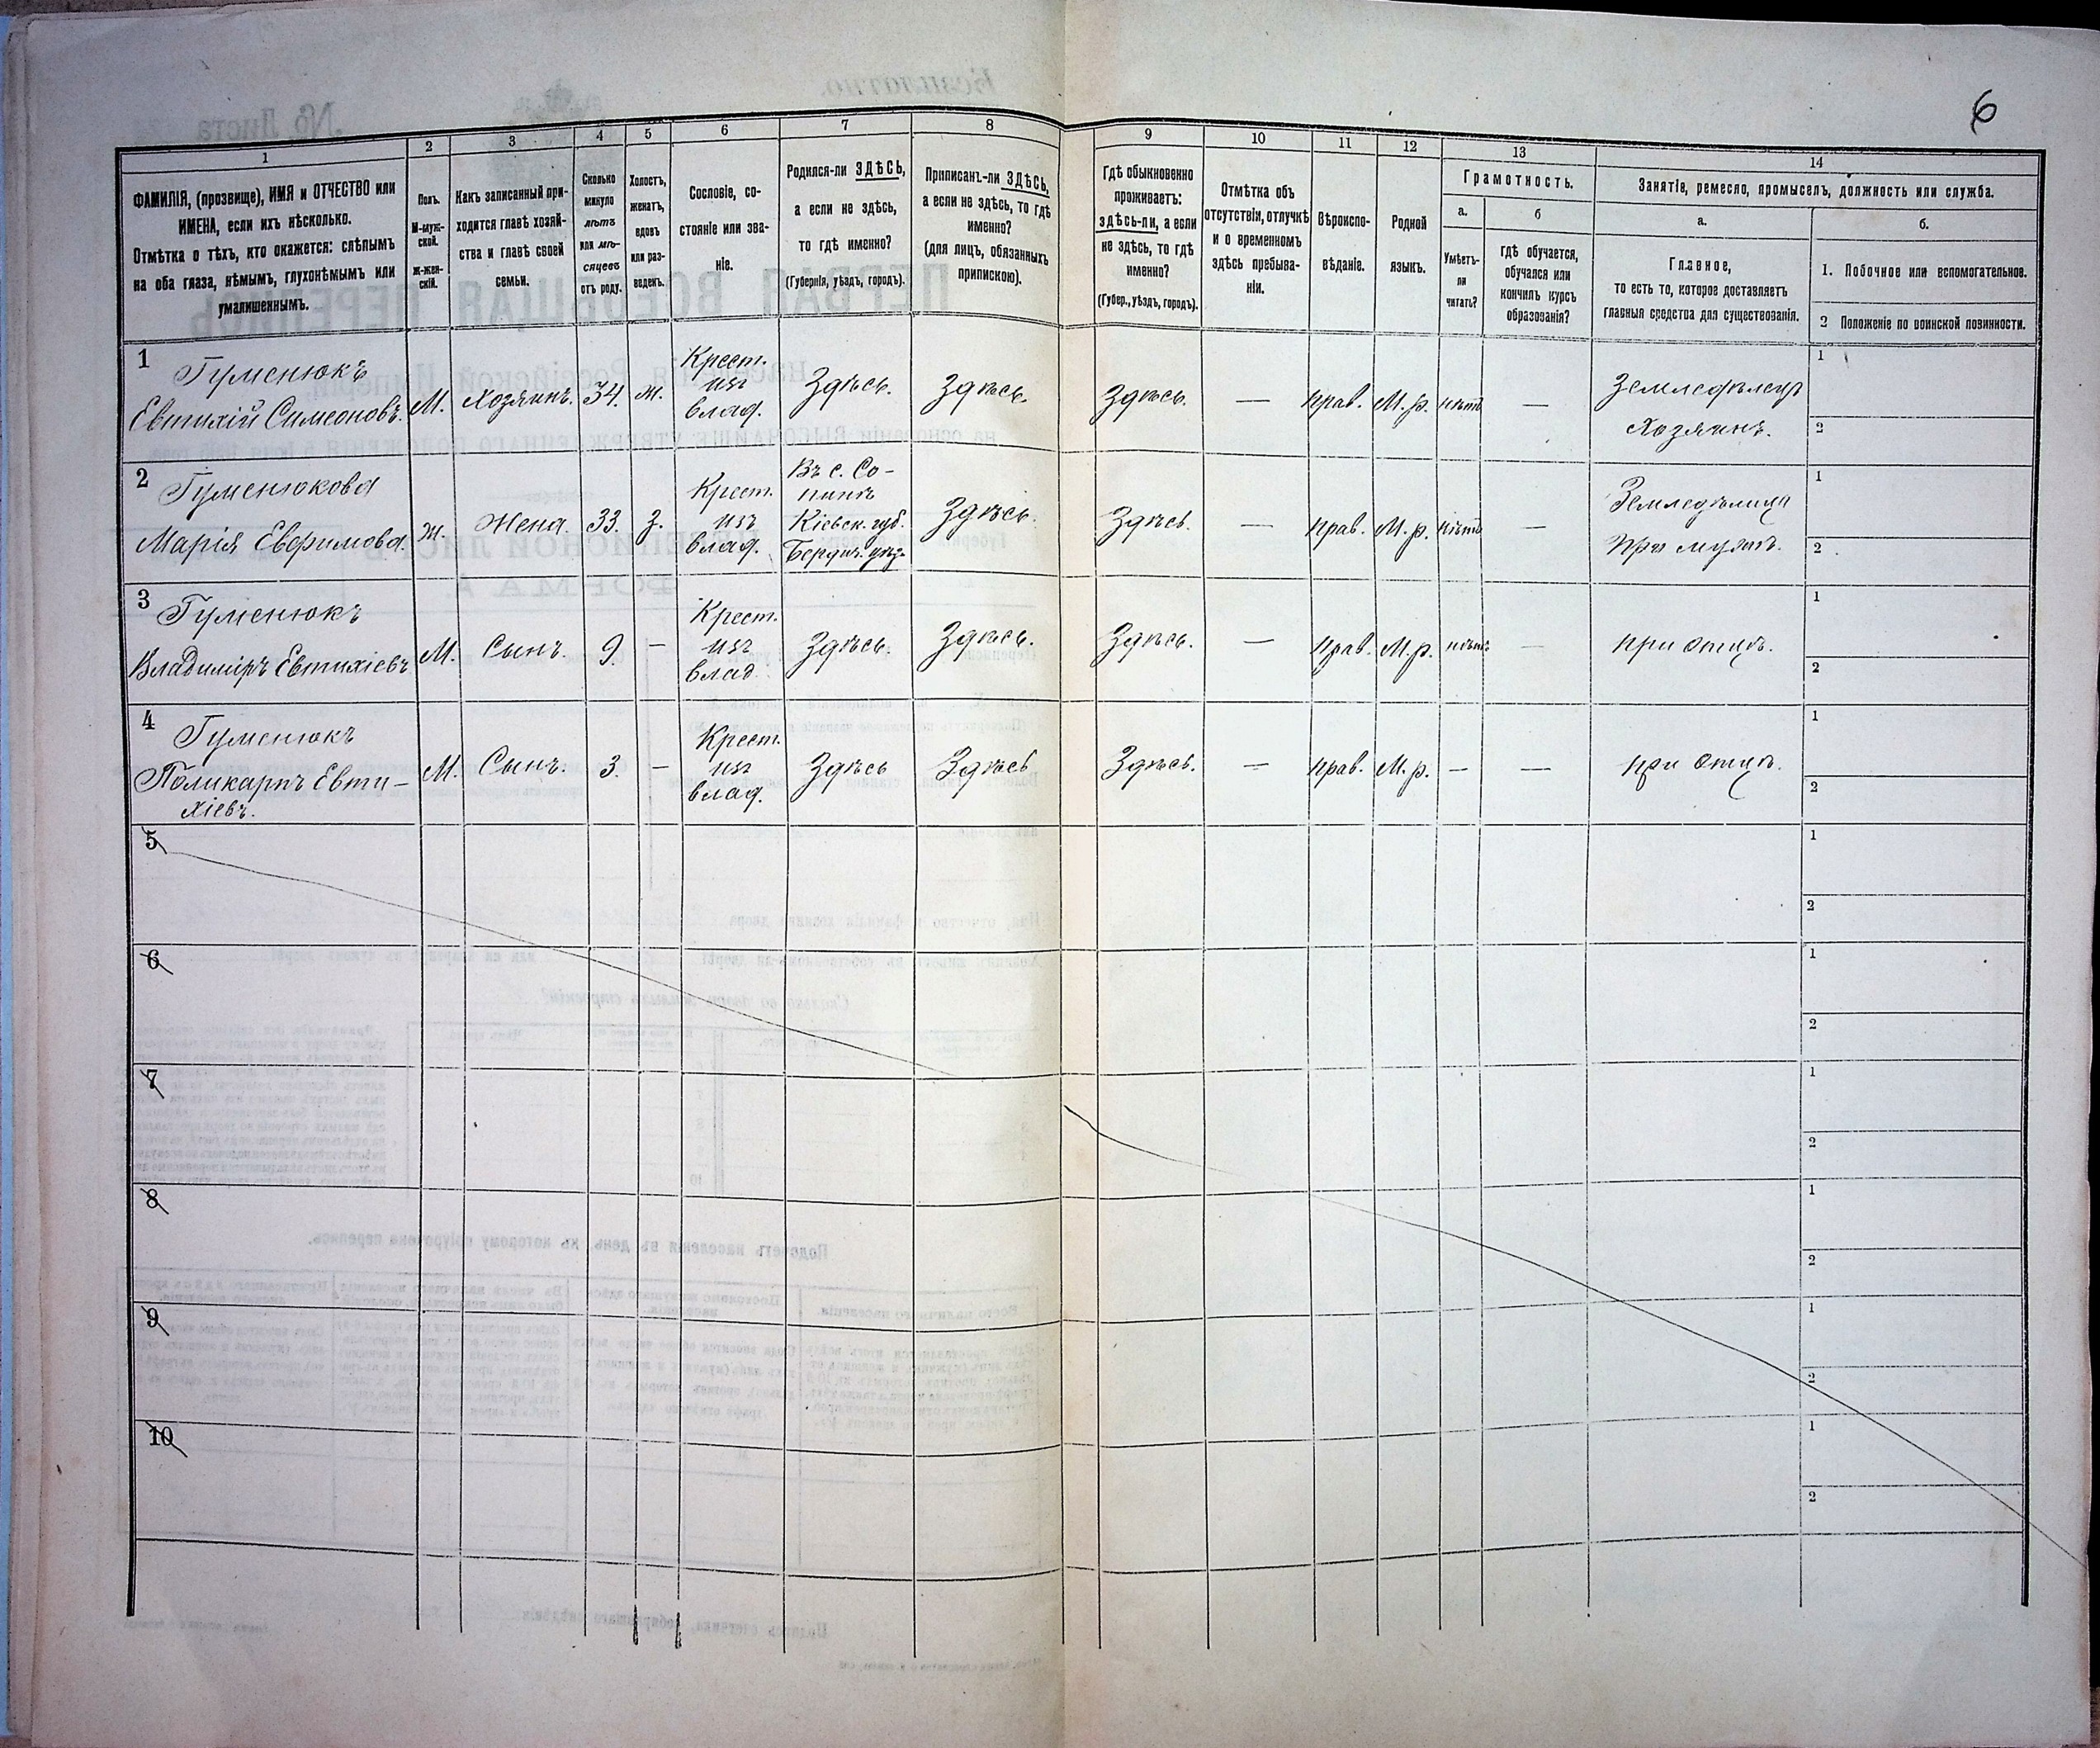 6
1
2
3
4
5
6
7
8
9
10
11
12
13
14
ФАМИЛІЯ, (прозвище), ИМЯ и ОТЧЕСТВО или
ИМЕНА, если ихъ нѣсколько.
Отмѣтка о тѣхъ, кто окажется: слѣпымъ
на оба глаза, нѣмымъ, глухонѣмымъ или
умалишеннымъ.
Полъ.
М-муж-
ской.
Ж-жен-
скій.
Какъ записанный при-
ходится главѣ хозяй-
ства и главѣ своей
семьи.
Сколько
минуло
лѣтъ
или мѣ-
сяцевъ
отъ роду.
Холостъ,
женатъ,
вдовъ
или раз-
веденъ.
Сословіе, со-
стояніе или зва-
ніе.
Родился-ли ЗДѢСЬ,
а если не здѣсь,
то гдѣ именно?
(Губернія, уѣздъ, городъ).
Приписанъ-ли ЗДѢСЬ,
а если не здѣсь, то гдѣ
именно?
(для лицъ, обязанныхъ
припискою).
Гдѣ обыкновенно
проживаетъ:
ЗДѢСЬ-ли, а если
не здѣсь, то гдѣ
именно?
(Губер., уѣздъ, городъ).
Отмѣтка объ
отсутствіи, отлучкѣ
и о временномъ
здѣсь пребыва-
ніи.
Вѣроиспо-
вѣданіе.
Родной
языкъ.
Грамотность.
а.
Умѣетъ-
ли
читать?
б
Гдѣ обучается,
обучался или
кончилъ курсъ
образованія?
Занятіе, ремесло, промыселъ, должность или служба.
а.
Главное,
то есть то, которое доставляетъ
главныя средства для существованія.
б.
1. Побочное или вспомогательное.
2 Положеніе по воинской повинности.
1
Гуменюкъ
Евтихій Симеоновъ.
М.
Хозяинъ.
34.
ж.
Крест.
изъ
влад.
Здѣсь.
Здѣсь.
Здѣсь.
—
прав.
М.р.
нѣтъ
—
Земледѣлецъ
Хозяинъ.
1
2
2
Гуменюкова
Марія Евфимова.
Ж.
Жена.
33.
З.
Крест.
изъ
влад.
Въ с. Со-
пинѣ
Кіевск. губ.
Бердич. уѣз.
Здѣсь.
Здѣсь.
—
прав.
М.р.
нѣтъ
—
Земледѣлица
при мужѣ.
1
2
3
Гуменюкъ
Владиміръ Евтихіевъ
М.
Сынъ.
9.
—
Крест.
изъ
влад.
Здѣсь.
Здѣсь.
Здѣсь.
—
прав.
М.р.
нѣтъ
—
при отцѣ.
1
2
4
Гуменюкъ
Поликарпъ Евти-
хіевъ.
М.
Сынъ.
3.
—
Крест.
изъ
влад.
Здѣсь
Здѣсь
Здѣсь.
—
прав.
М.р.
—
—
при отцѣ.
1
2
5
1
2
6
1
2
7
1
2
8
1
2
9
1
2
10
1
2